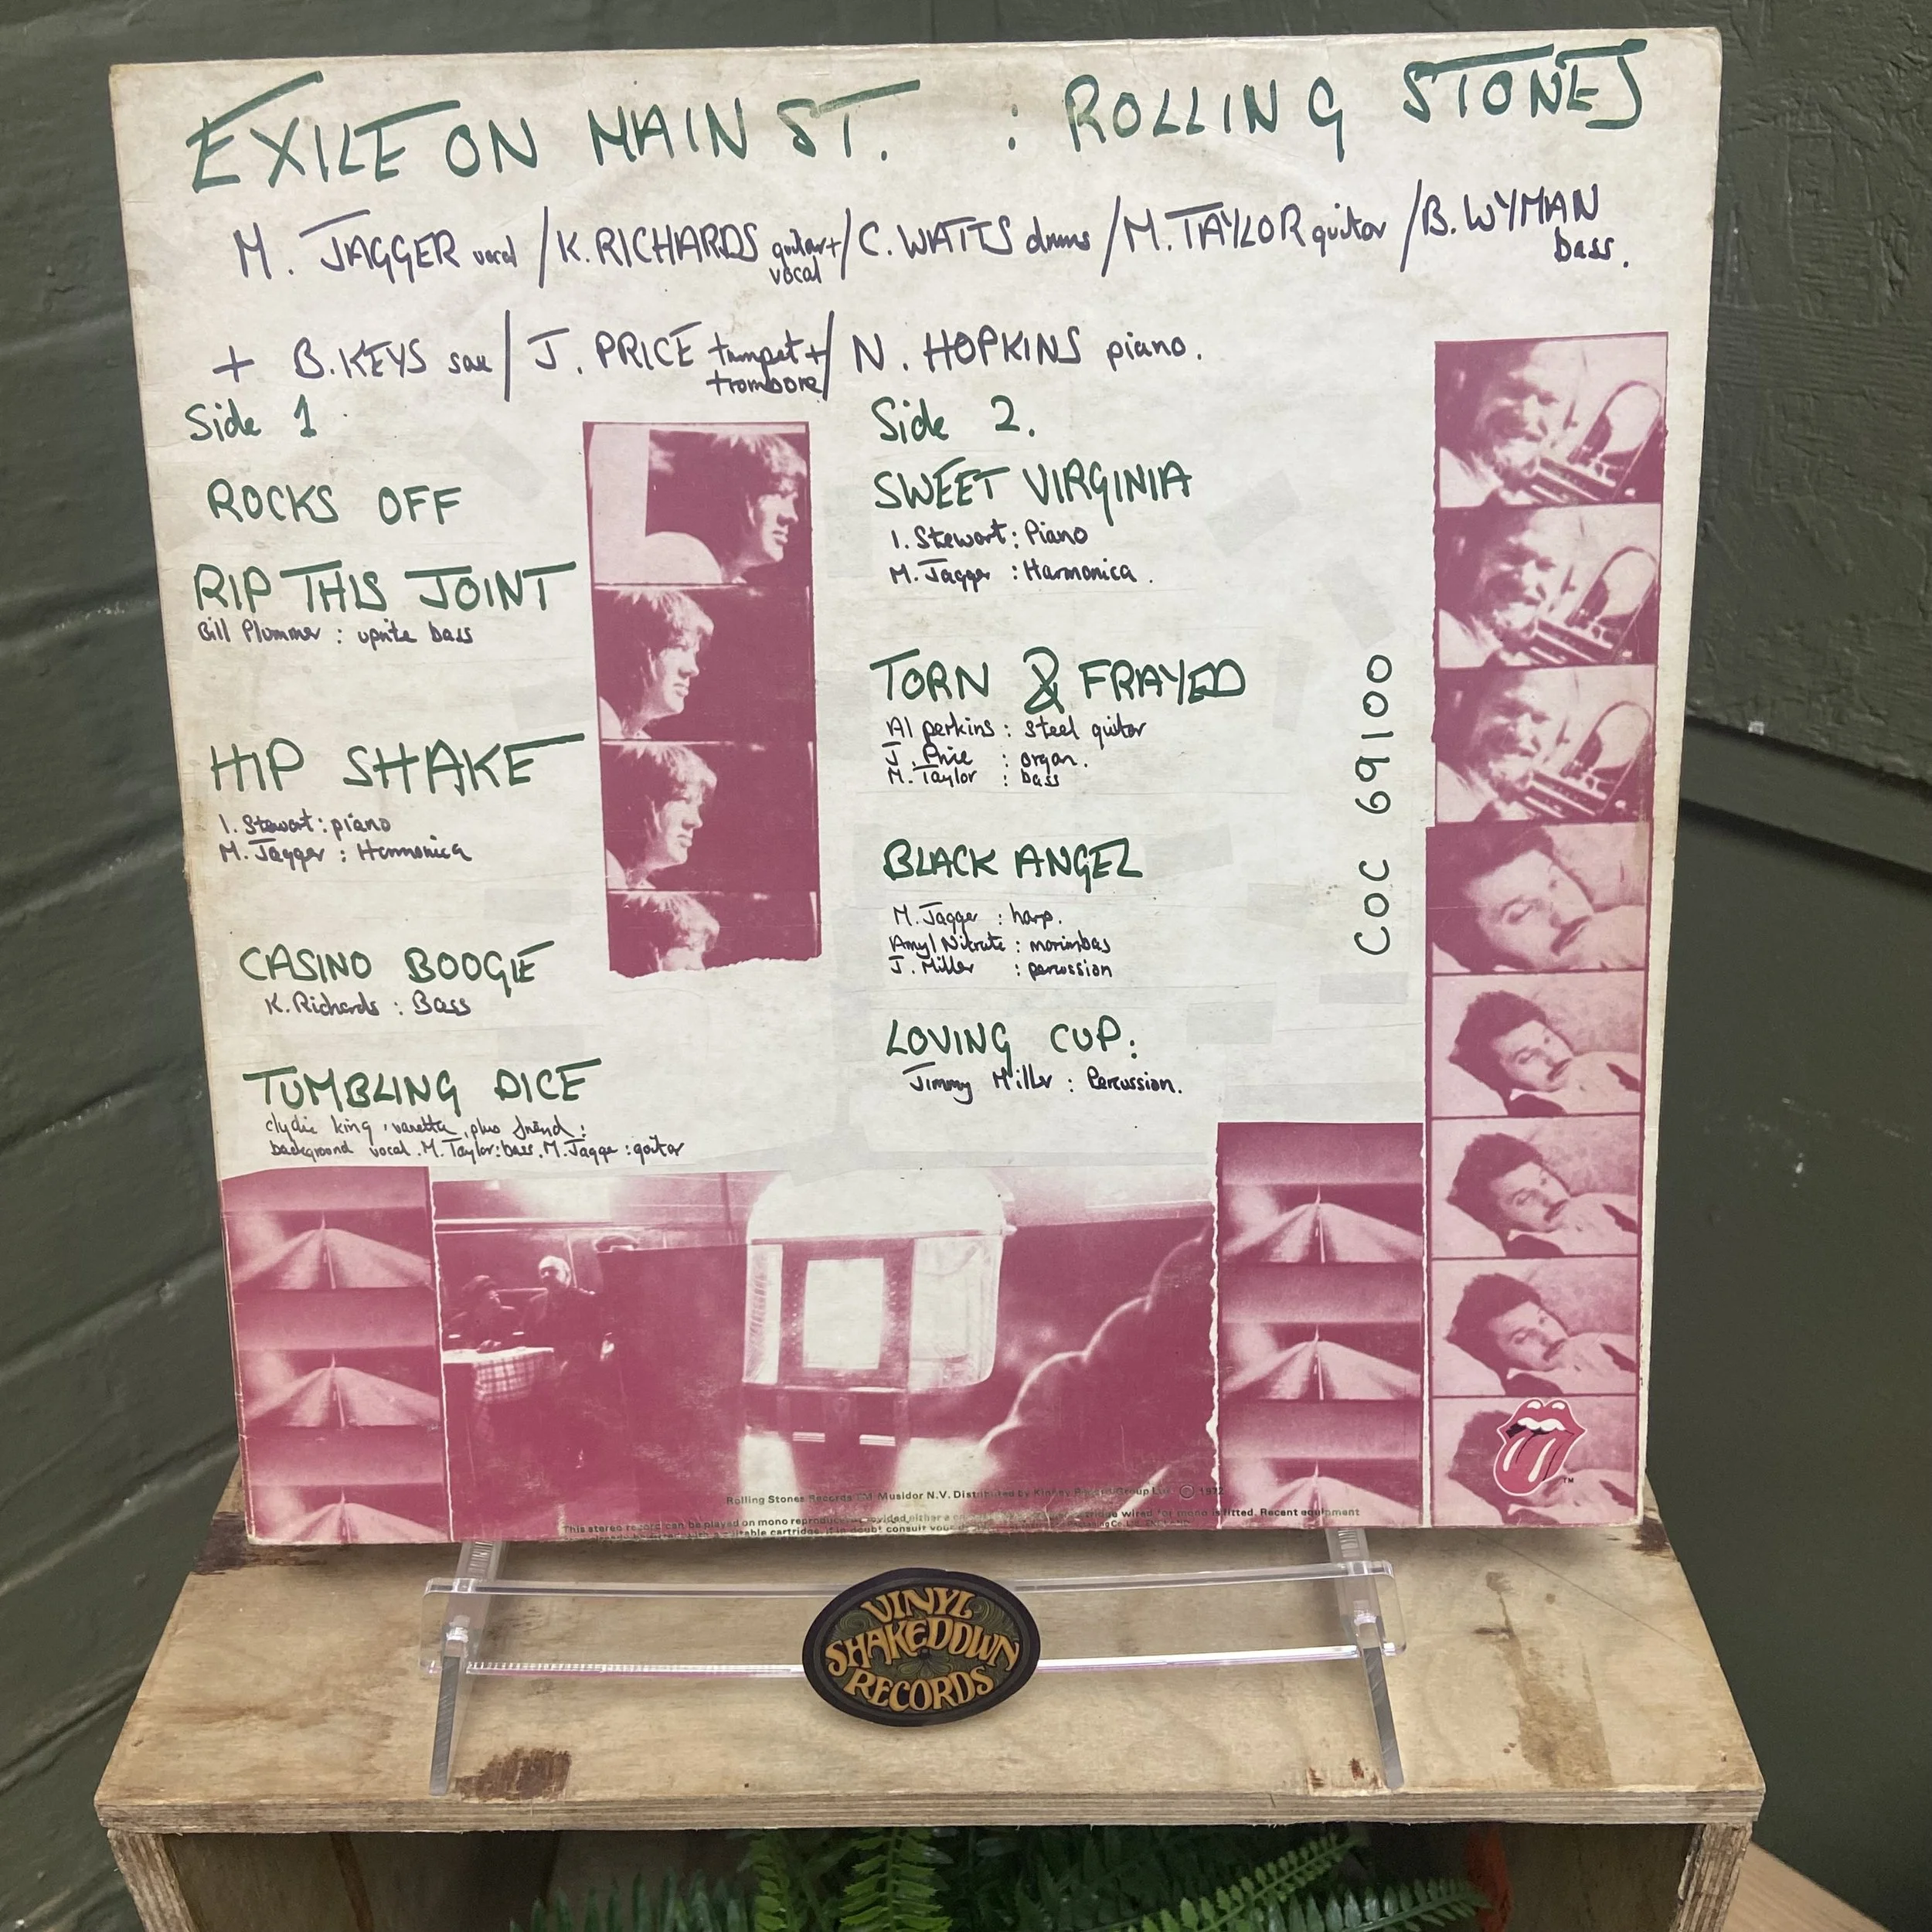 EXILE ON MAIN ST. : ROLLING STONES
M. JAGGER vocal / K. RICHARDS guitar + vocal / C. WATTS drums / M. TAYLOR guitar / B. WYMAN bass.
+ B. KEYS sax / J. PRICE trumpet + trombone / N. HOPKINS piano.
Side 1
ROCKS OFF
RIP THIS JOINT
Bill Plummer : uprite bass
HIP SHAKE
I. Stewart : piano
M. Jagger : Harmonica
CASINO BOOGIE
K. Richards : Bass
TUMBLING DICE
clydie king, vanetta, plus friend :
background vocal. M. Taylor : bass. M. Jagger : guitar
Side 2.
SWEET VIRGINIA
I. Stewart : Piano
M. Jagger : Harmonica.
TORN & FRAYED
Al perkins : steel guitar
J. Price : organ.
M. Taylor : bass
BLACK ANGEL
M. Jagger : harp.
Amyl Nitrate : marimbas
J. Miller : percussion
LOVING CUP :
Jimmy Miller : Percussion.
COC 69100
Rolling Stones Records TM Musidor N.V. Distributed by Kinney Record Group Ltd. © 1972
This stereo record can be played on mono reproducers provided either a cartridge wired for mono is fitted. Recent equipment
suitable cartridge. If in doubt consult your
TM
VINYL
SHAKEDOWN
RECORDS